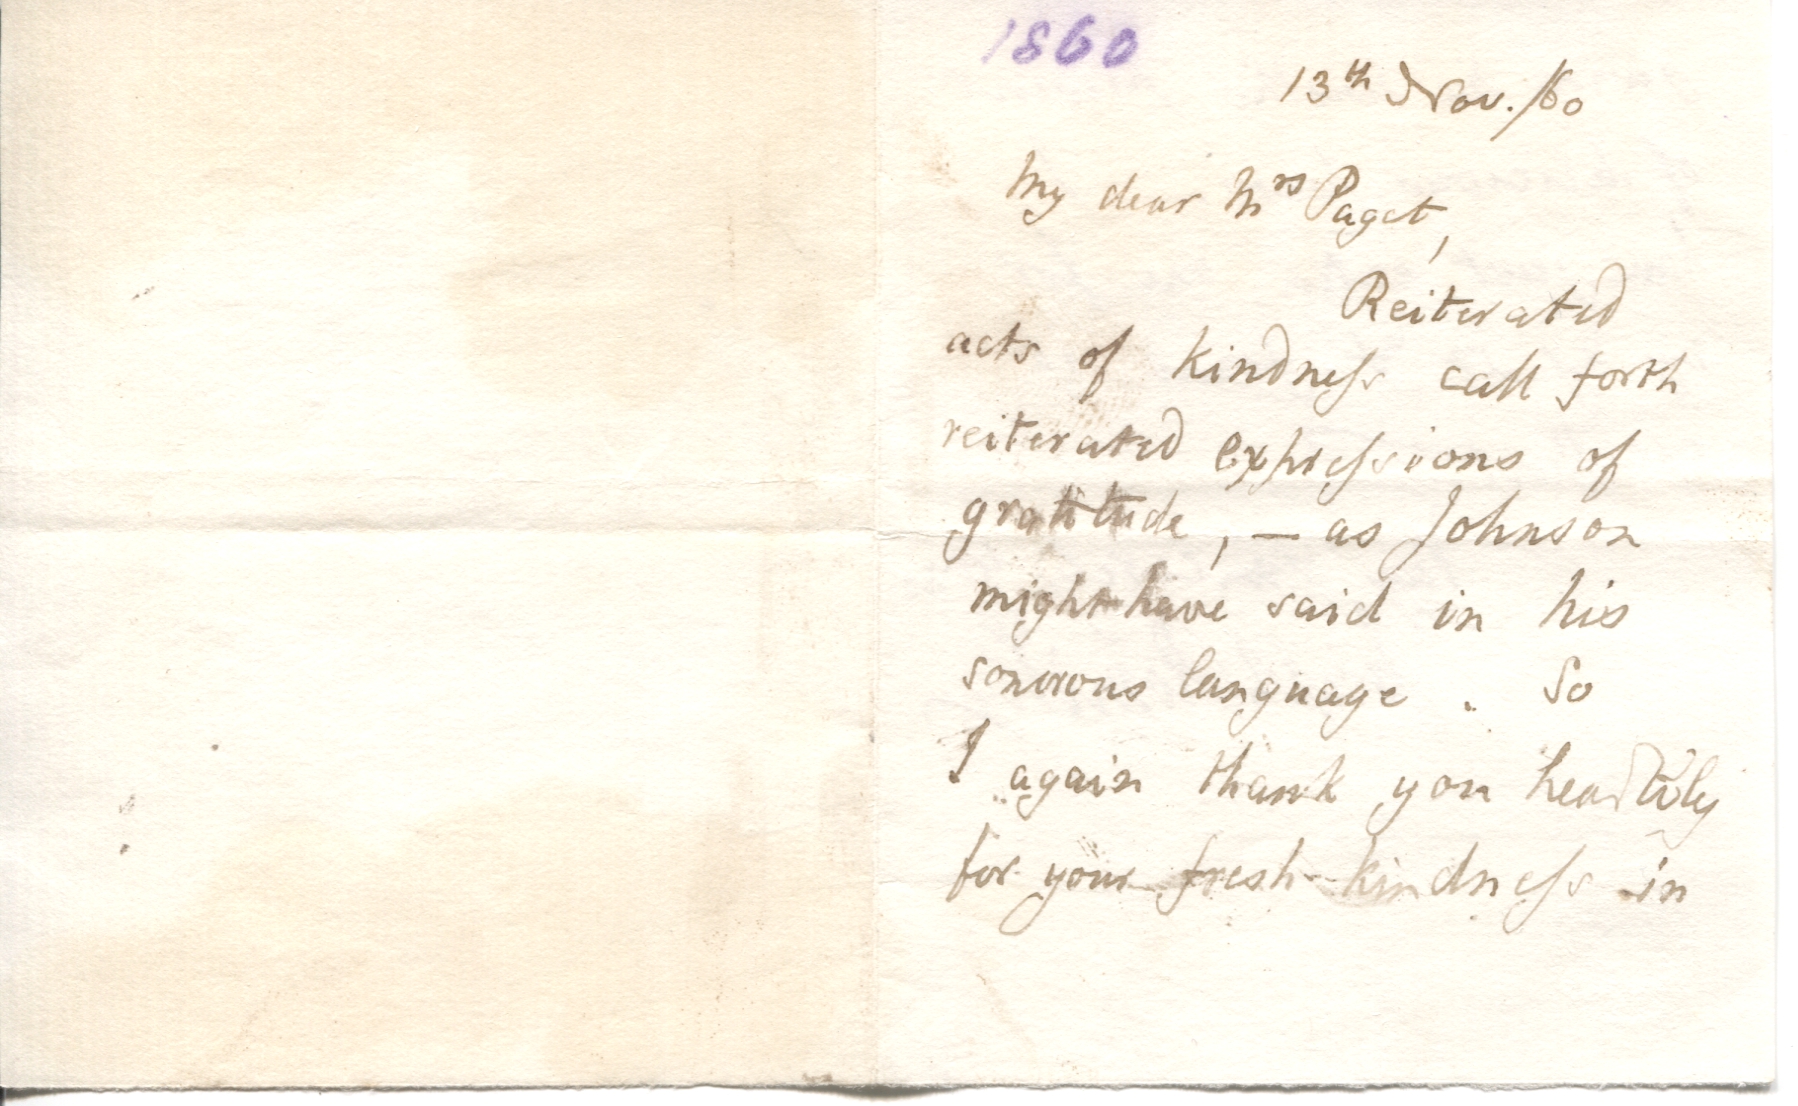 1860
13th Nov. /60
My dear Mrs Paget,
Reiterated
acts of kindness call forth
reiterated expressions of
gratitude, — as Johnson
might have said in his
sonorous language. So
I again thank you heartily
for your fresh kindness in